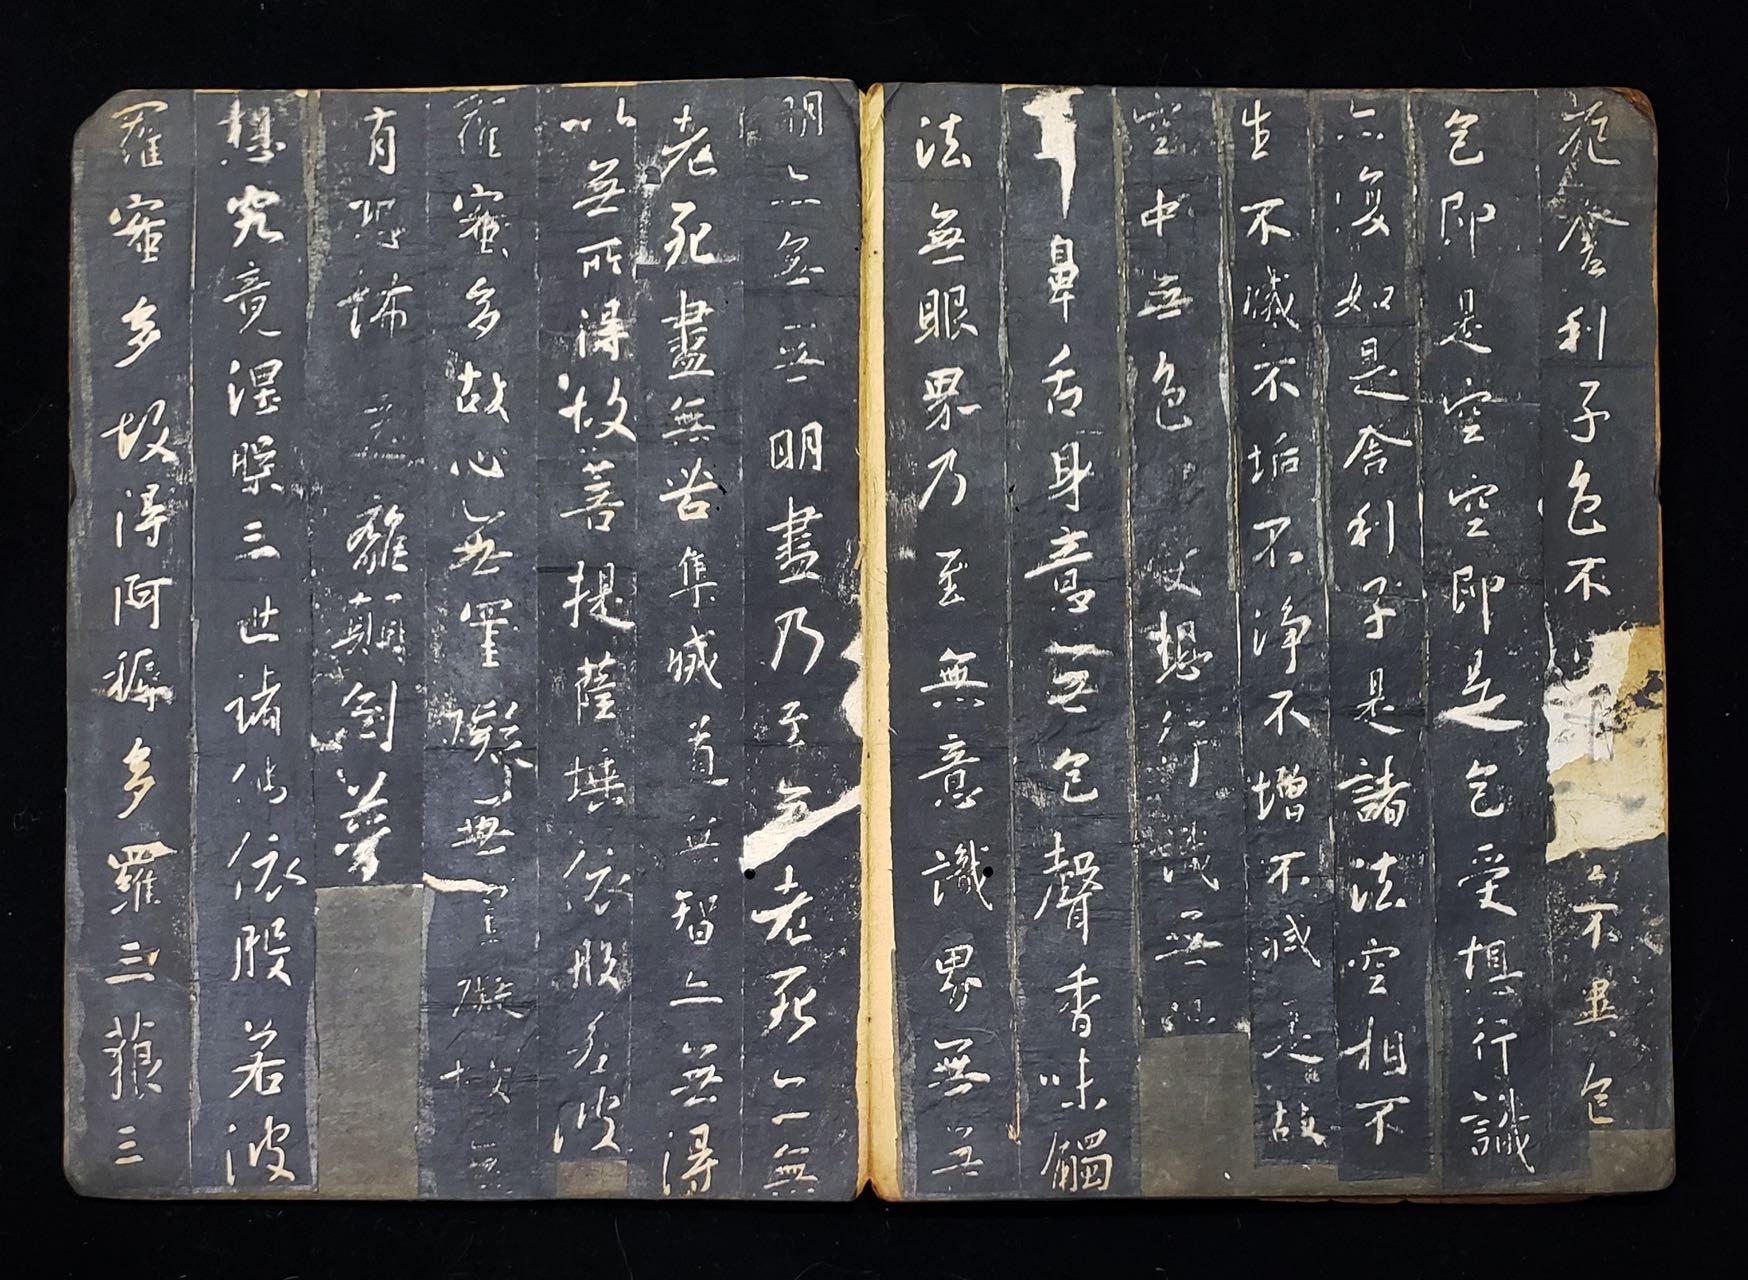 厄舍利子色不不異色
色即是空空即是色受想行識
亦復如是舍利子是諸法空相不
生不滅不垢不淨不增不減是故
空中無色受想行識無
鼻舌身意無色聲香味觸
法無眼界乃至無意識界無無
明亦無無明盡乃至無老死亦無
老死盡無苦集滅道無智亦無得
以無所得故菩提薩埵依般若波
羅蜜多故心無罣礙無罣礙故無
有恐怖遠離顛倒夢
想究竟涅槃三世諸佛依般若波
羅蜜多故得阿耨多羅三藐三